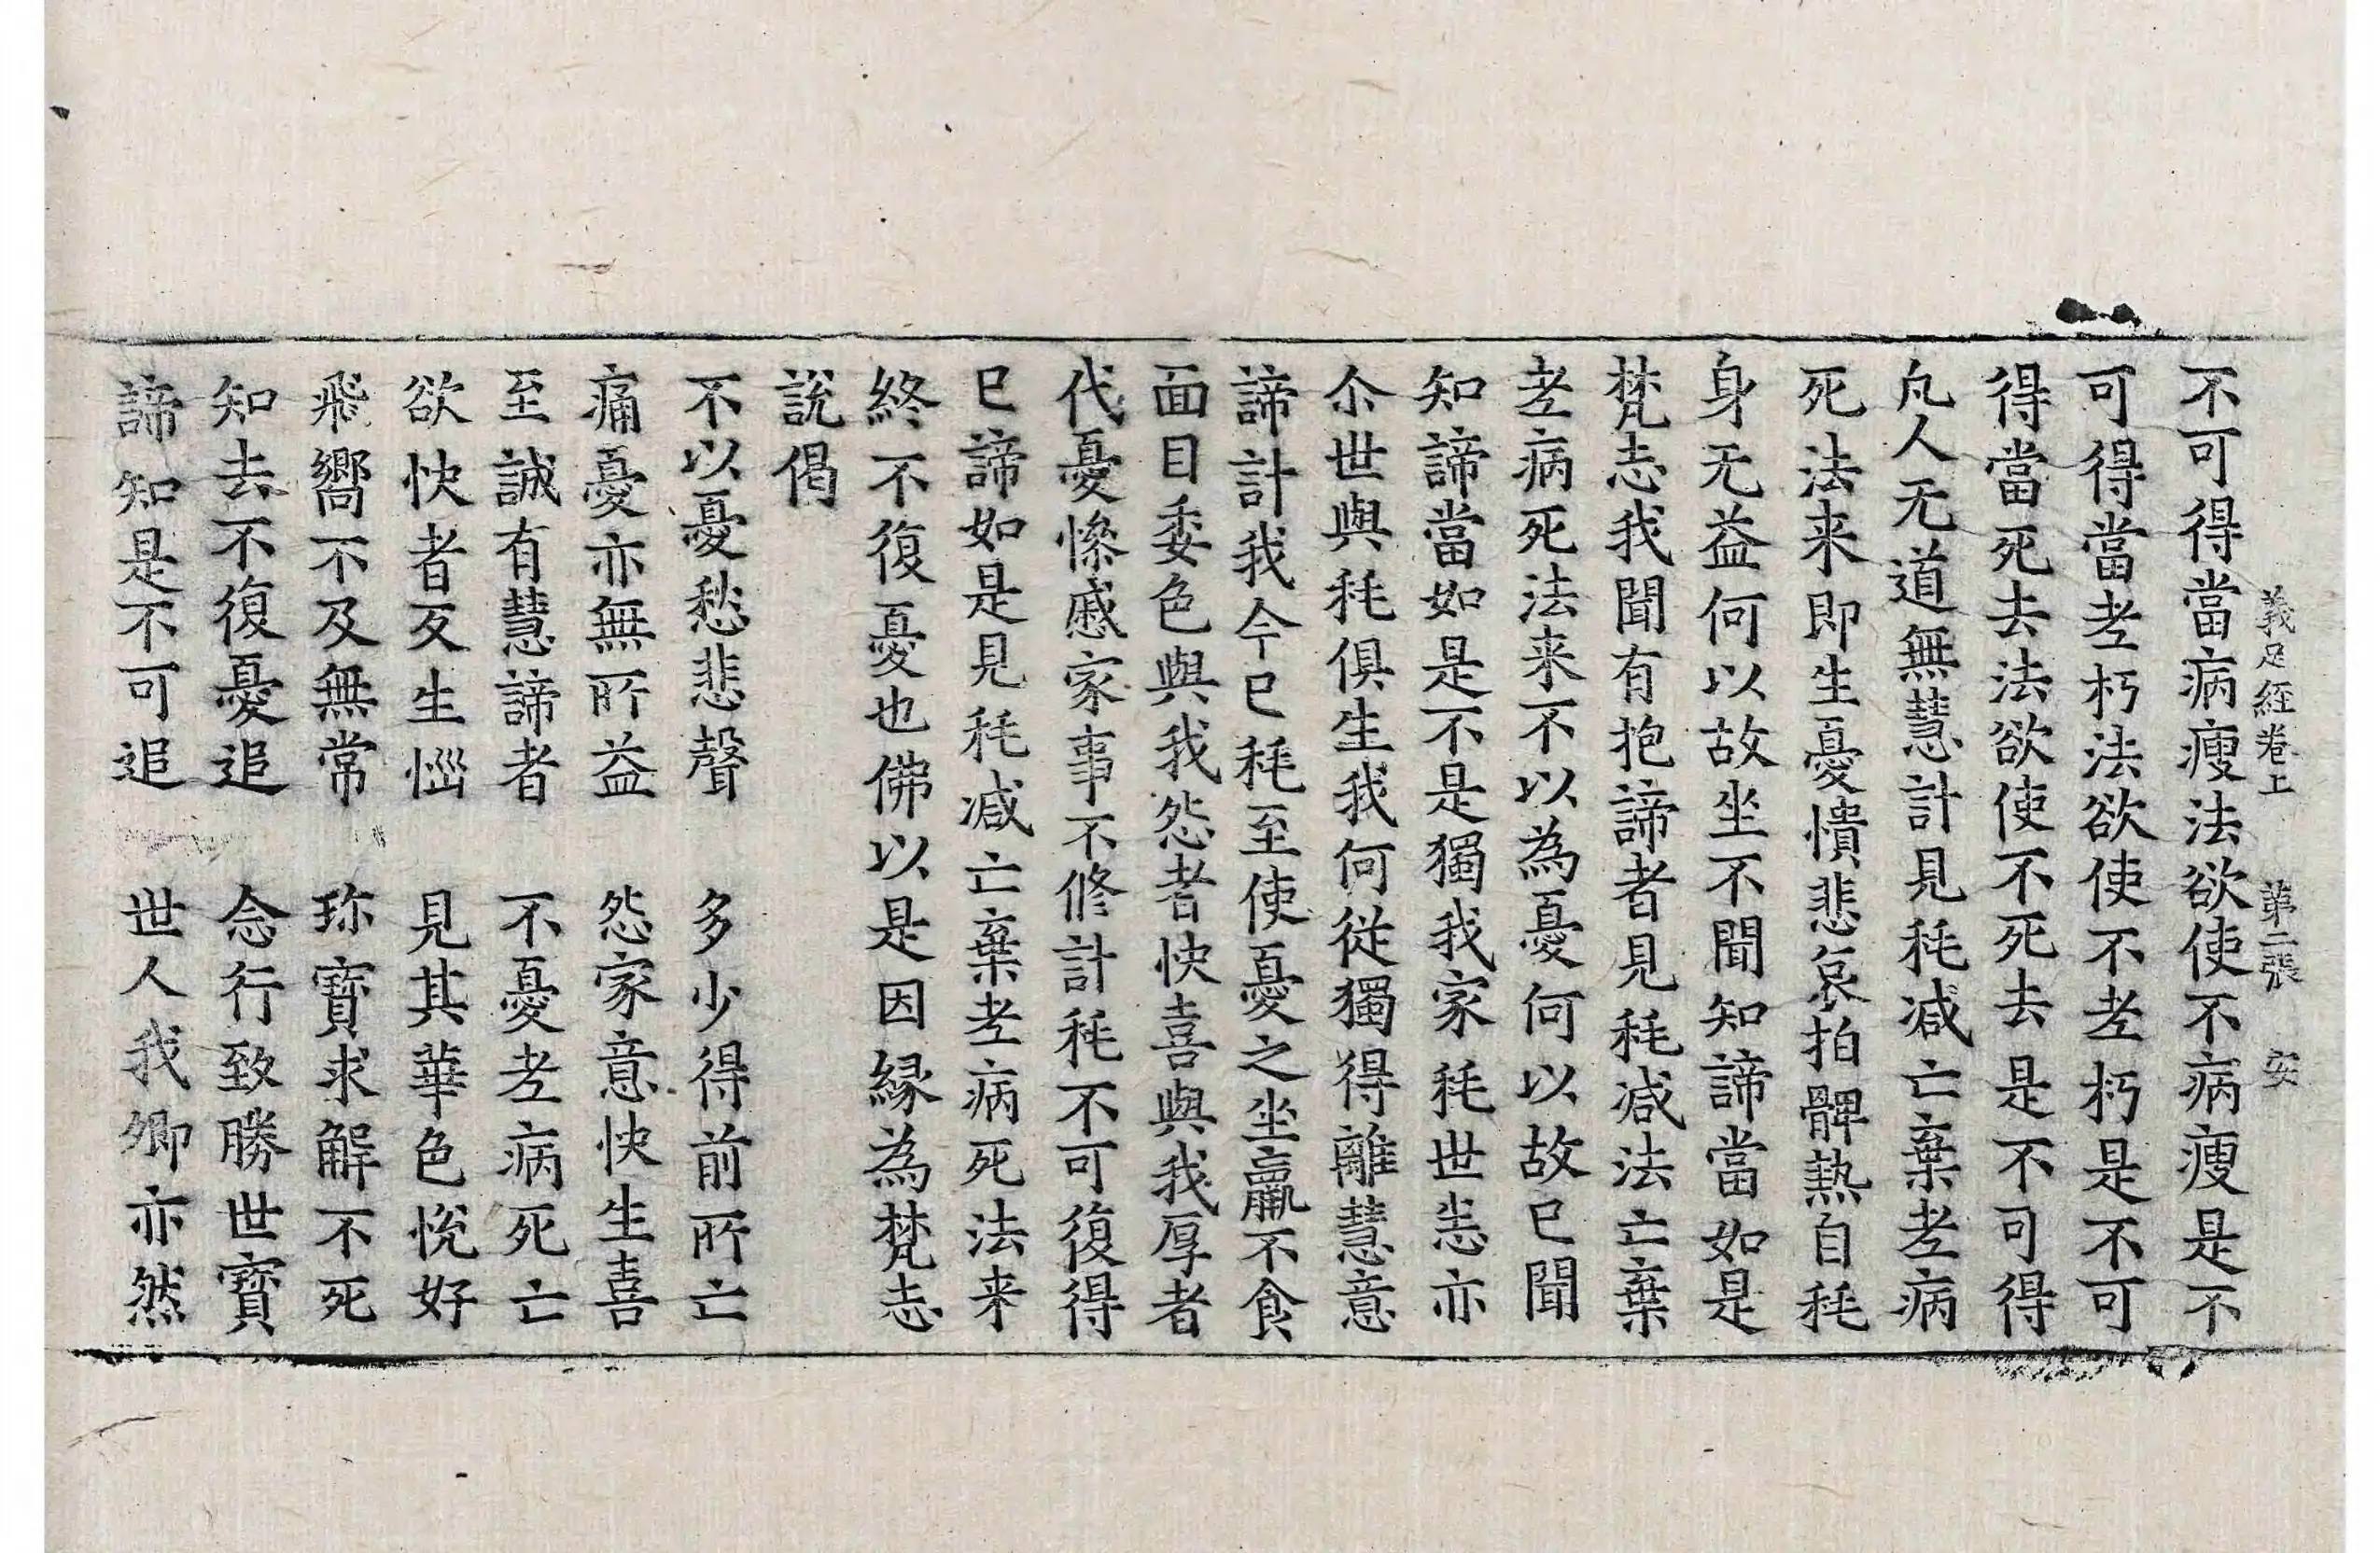 義足經卷上　第二張　安
不可得當病瘦法欲使不病瘦是不
可得當老朽法欲使不老朽是不可
得當死去法欲使不死去是不可得
凡人无道無慧計見秏減亡棄老病
死法来即生憂憒悲哀拍髀熱自秏
身无益何以故坐不聞知諦當如是
梵志我聞有抱諦者見秏減法亡棄
老病死法来不以為憂何以故已聞
知諦當如是不是獨我家秏世悉亦
尒世與秏俱生我何從獨得離慧意
諦計我今已秏至使憂之坐羸不食
面目委色與我怨者快喜與我厚者
代憂慘慼家事不修計秏不可復得
已諦如是見秏減亡棄老病死法来
終不復憂也佛以是因緣為梵志
說偈
不以憂愁悲聲　多少得前所亡
痛憂亦無所益　怨家意快生喜
至誠有慧諦者　不憂老病死亡
欲快者反生惱　見其華色悅好
飛嚮不及無常　珎寶求解不死
知去不復憂追　念行致勝世寶
諦知是不可追　世人我卿亦然